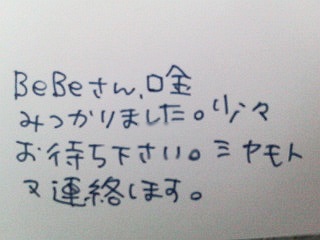 BeBeさん、口金
みつかりました。少々
お待ち下さい。ミヤモト
又連絡します。